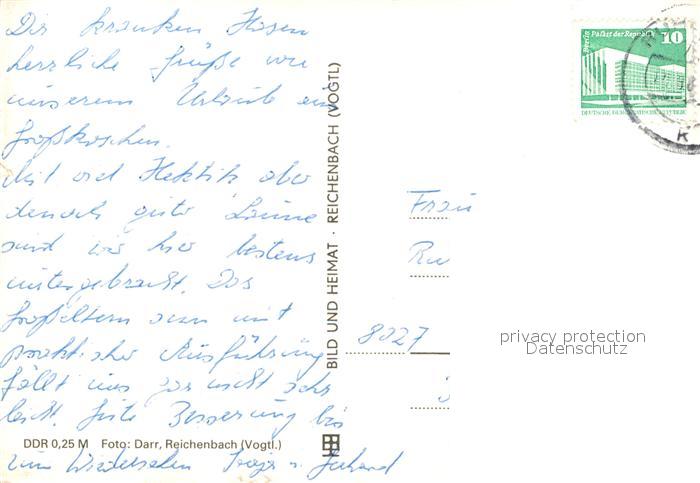 Dir kranken Hasen
herzliche Grüße von
unserem Urlaub ein
Großkoschen.
Mit viel Hektik aber
dennoch guter Laune
sind wir hier bestens
untergebracht. Das
Großeltern sein mit
praktischer Ausführung
fällt uns gar nicht sehr
leicht. Gute Besserung bis
zum Wiedersehen u. Gerhard
DDR 0,25 M Foto: Darr, Reichenbach (Vogtl.)
BILD UND HEIMAT · REICHENBACH (VOGTL)
Berlin Palast der Republik 10
DEUTSCHE DEMOKRATISCHE REPUBLIK
K
Frau
Ru
8027
privacy protection
Datenschutz